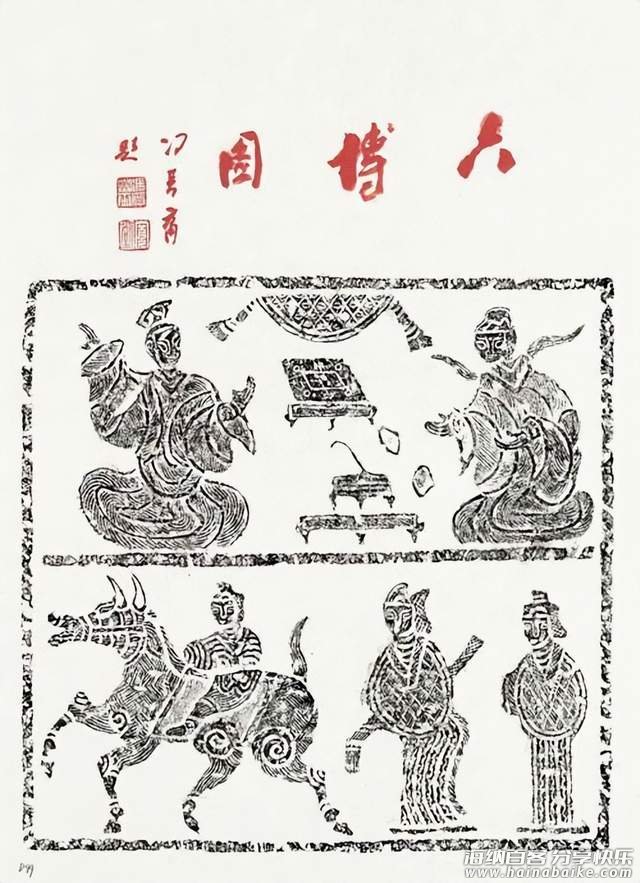 六博图
冯其庸
题
海纳百客 分享快乐
www.hainabaike.com